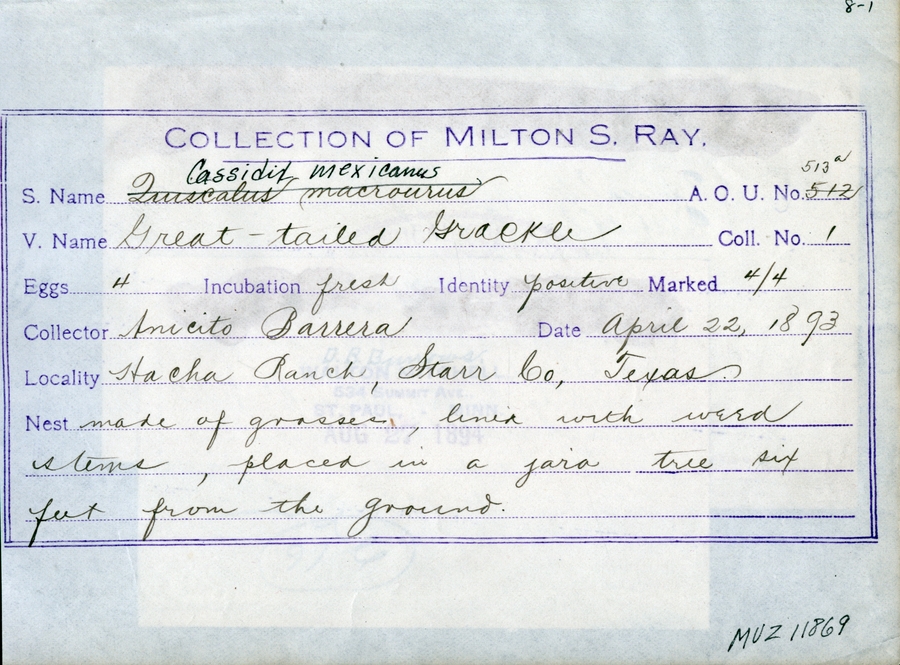 8-1
COLLECTION OF MILTON S. RAY.
Cassidix mexicanus 513a
S. Name Quiscalus macrourus A. O. U. No. 512
V. Name Great-tailed Grackle Coll. No. 1
Eggs 4 Incubation fresh Identity positive Marked 4/4
Collector Anicito Barrera Date April 22, 1893
Locality Hacha Ranch, Starr Co, Texas
Nest made of grasses, lined with weed
stems, placed in a jara tree six
feet from the ground.
534 SUMMIT AVE.
ST. PAUL, MINN.
AUG 27 1894
MVZ 11869